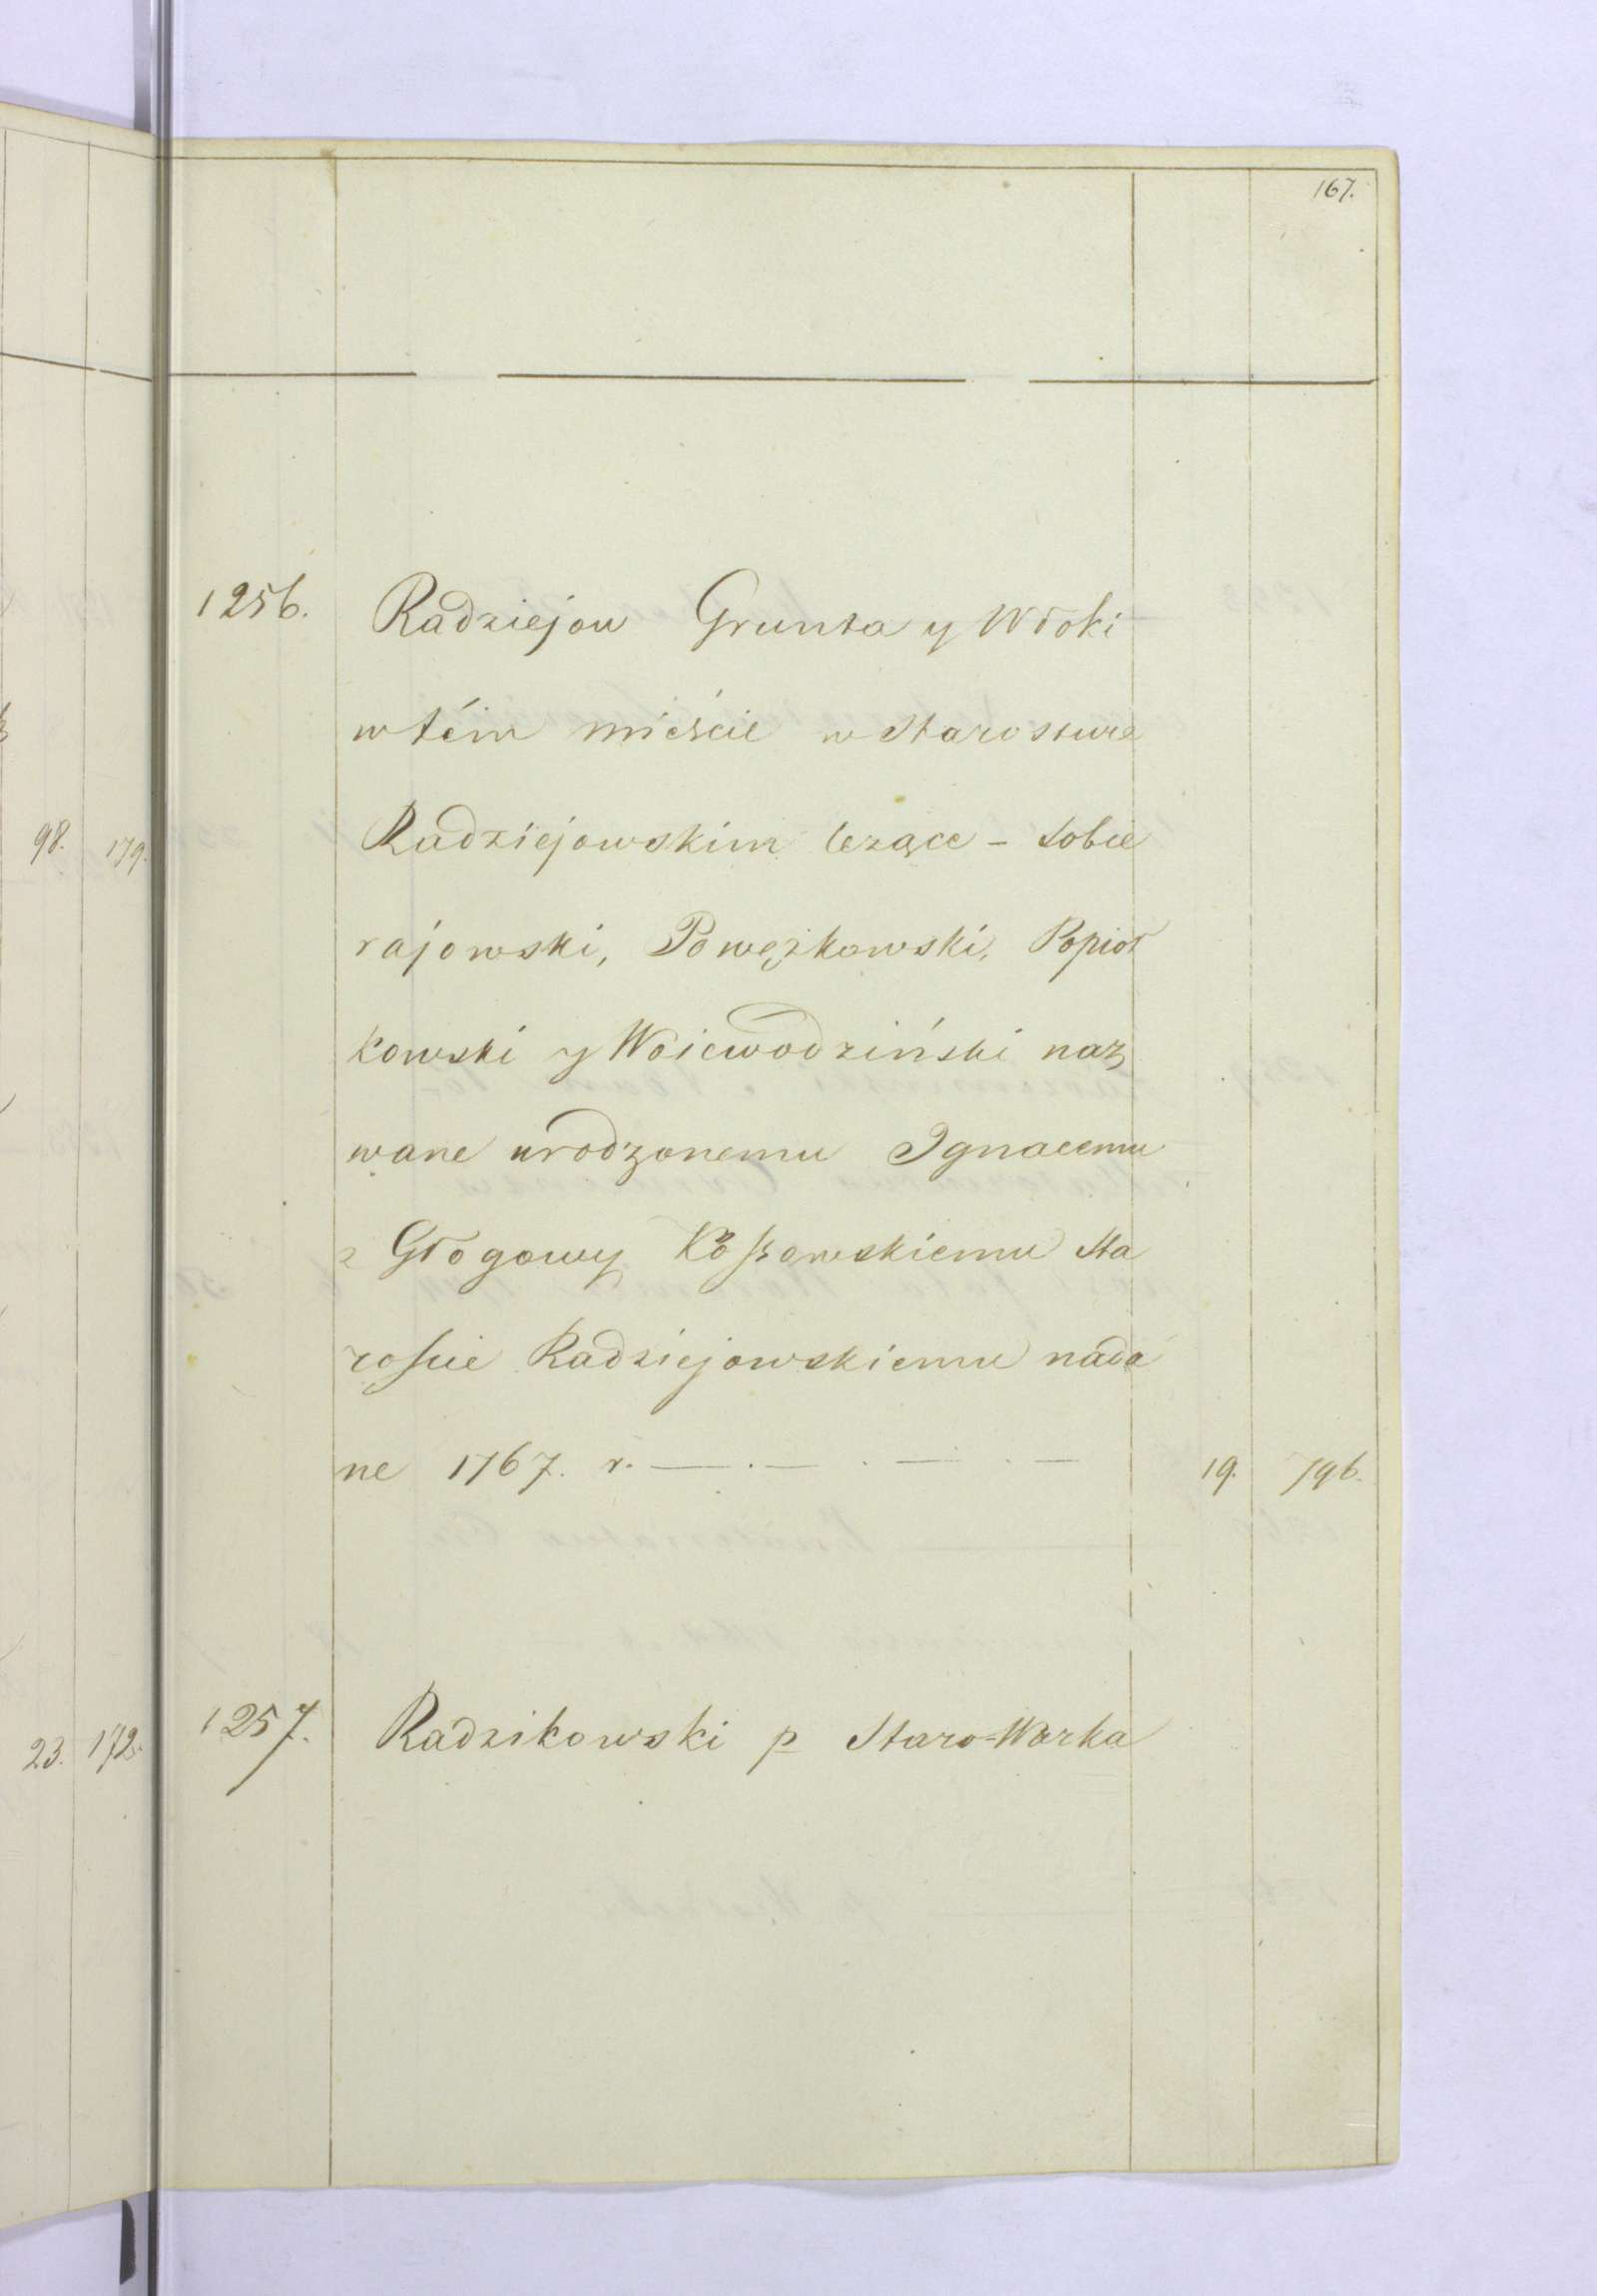 167.
1256. Radziejow Grunta y Włoki
w tém mieście w Starostwie
Radziejowskim leżące - Sobie
rajowski, Powężkowski, Popioł
kowski y Woiewodziński naz
wane urodzonemu Ignacemu
z Głogowy Koſsowskiemu Sta
roſcie Radziejowskiemu nada
ne 1767. r. — . — . — . — 19. 796.
1257. Radzikowski p Staro=Warka
98. 179.
23. 172.